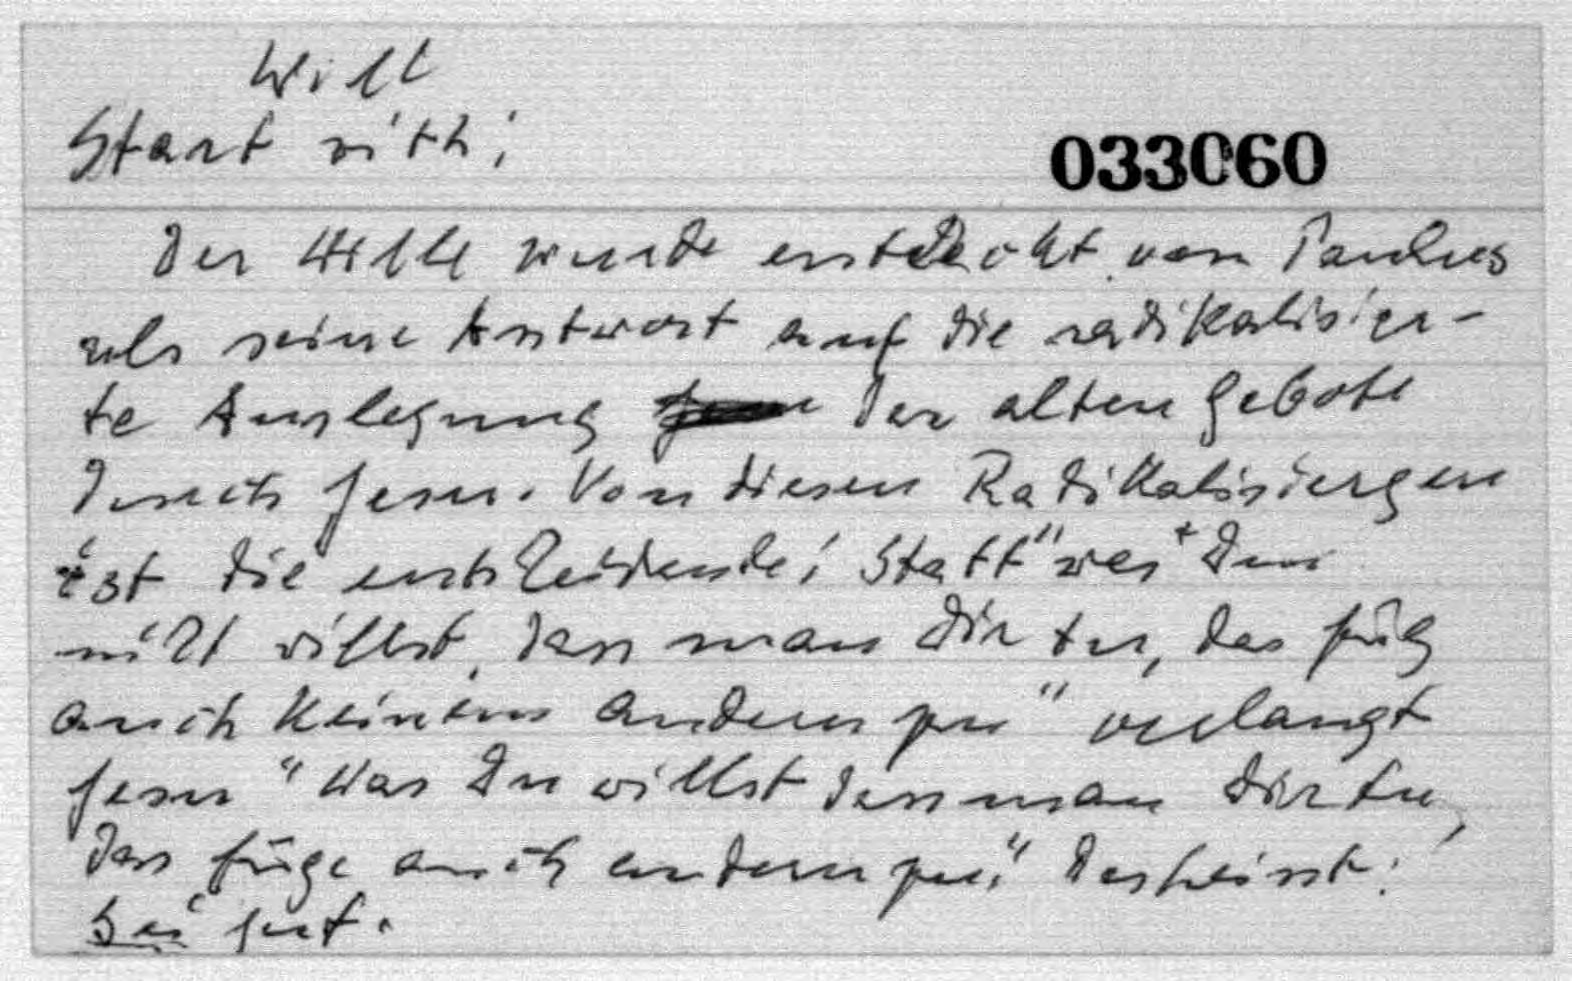 Will
Start with:
033060
Der Wille wurde entdeckt von Paulus
als seine Antwort auf die radikalisier-
te Auslegung der alten Gebote
durch Jesu. Von diesen Radikalisiergen
ist die entscheidende: Statt "was Du
nicht willst, dass man dir tu, das füg
auch keinem andern zu" verlangt
Jesu "Was Du willst dass man dir tu,
das füge auch andern zu." Das heisst:
Sei gut.